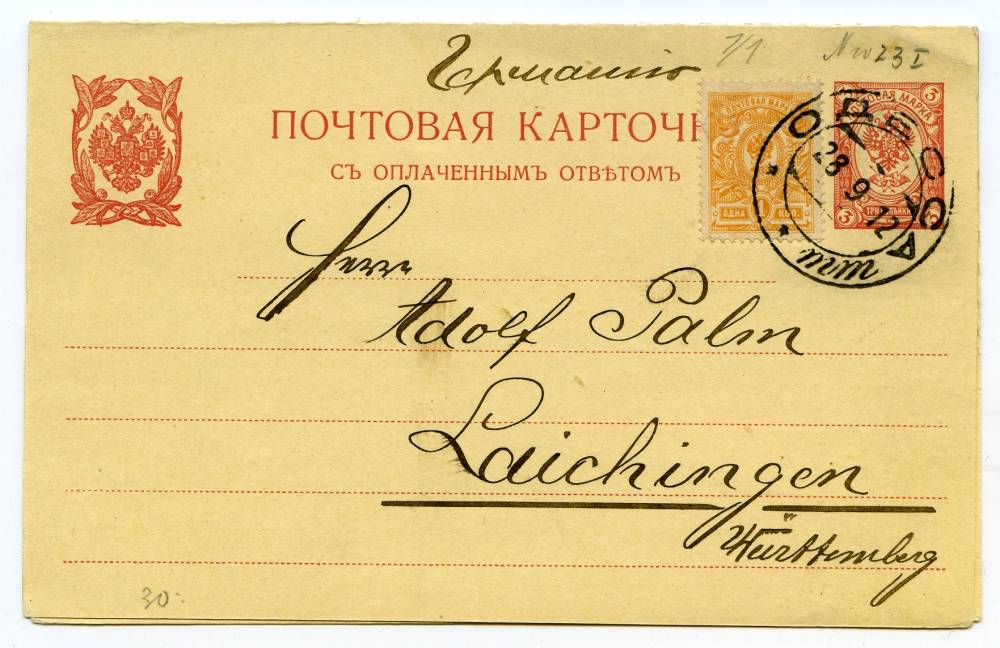 Германію 7/1 N 23 I
ПОЧТОВАЯ КАРТОЧК
СЪ ОПЛАЧЕННЫМЪ ОТВѢТОМЪ
ПОЧТОВАЯ МАРКА
ОДНА 1 КОП.
3 ТОВАЯ МАРКА 3
3 ТРИ КОПѢЙКИ
ОДЕССА
28 9 12
Herrn
Adolf Palm
Laichingen
Württemberg
30